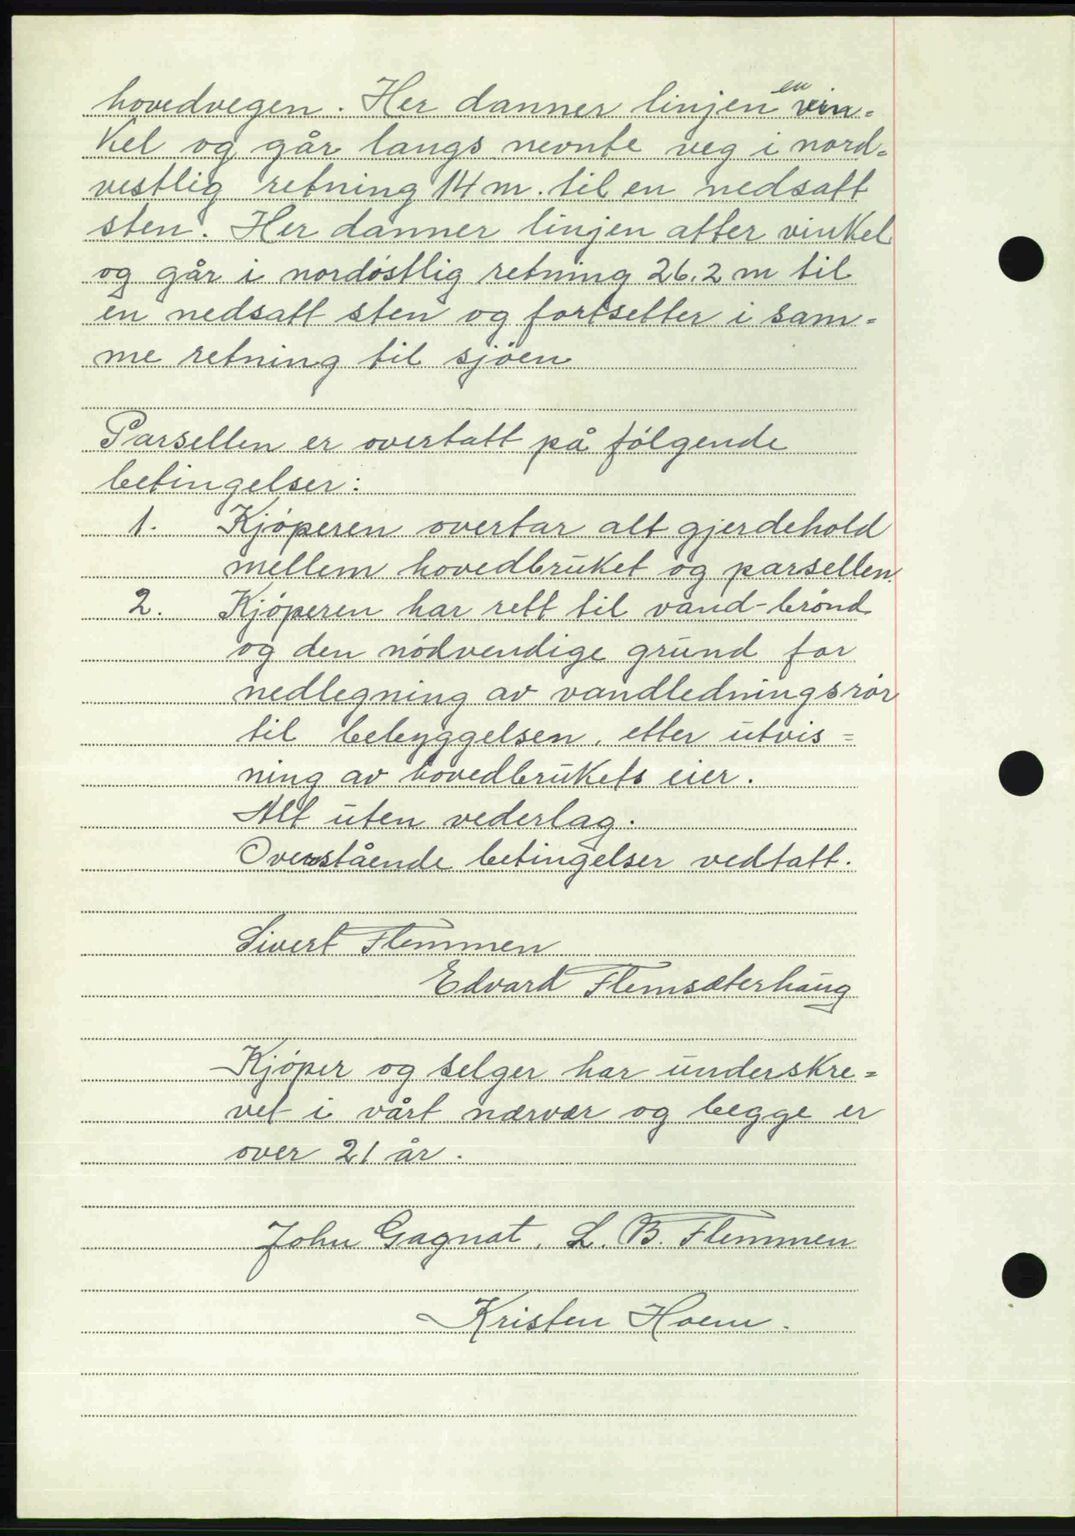 hovedvegen. Her danner linjen en vin=
kel og går langs nevnte veg i nord=
vestlig retning 14 m. til en nedsatt
sten. Her danner linjen atter vinkel
og går i nordöstlig retning 26.2 m til
en nedsatt sten og fortsetter i sam=
me retning til sjöen
Parsellen er overtatt på fölgende
betingelser:
1. Kjöperen overtar alt gjerdehold
mellem hovedbruket og parsellen.
2. Kjöperen har rett til vand-brönd
og den nödvendige grund for
nedlegning av vandledningsrör
til bebyggelsen, etter utvis=
ning av hovedbrukets eier.
Alt uten vederlag.
Overstående betingelser vedtatt.
Sivert Flemmen
Edvard Flemsæterhaug
Kjöper og selger har underskre=
vet i vårt nærvær og begge er
over 21 år.
John Gagnat, L. B. Flemmen
Kristen Hoem.